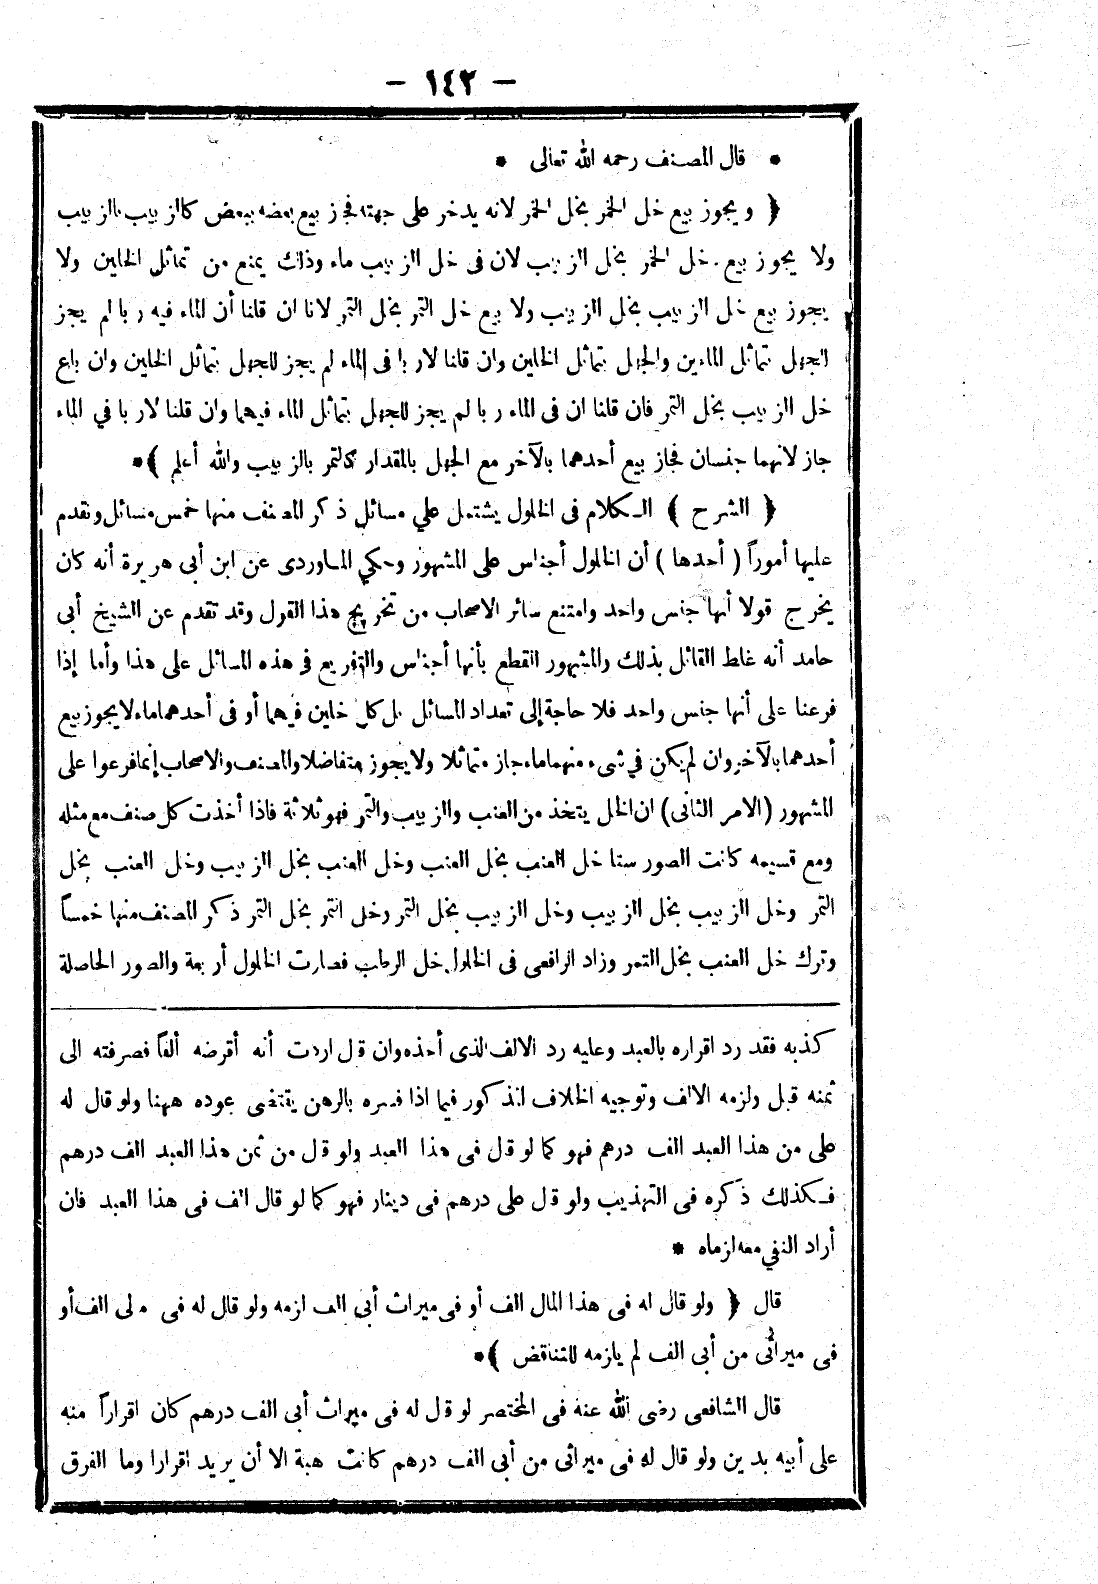 — ١٤٣ —
* قال المصنف رحمه الله تعالى *
﴿ ويجوز بيع خل الخمر بخل الخمر لانه يدخر على جهته فجز بيع بعضه ببعض كالزبيب بالزبيب
ولا يجوز بيع خل الخمر بخل الزبيب لان فى خل الزبيب ماء وذلك يمنع من تماثل الخلين ولا
يجوز بيع خل الزبيب بخل الزبيب ولا بيع خل التمر بخل التمر لانا ان قلنا أن الماء فيه ربا لم يجز
للجهل بتماثل الماءين والجهل بتماثل الخلين وان قلنا لا ربا فى الماء لم يجز للجهل بتماثل الخلين وان باع
خل الزبيب بخل التمر فان قلنا ان فى الماء ربا لم يجز للجهل بتماثل الماء فيهما وان قلنا لا ربا في الماء
جاز لانهما جنسان فجاز بيع أحدهما بالآخر مع الجهل بالمقدار كالتمر بالزبيب والله أعلم ﴾*
﴿ الشرح ﴾ الكلام فى الخلول يشتمل علي مسائل ذكر المصنف منها خمس مسائل ونقدم
عليها أموراً ( أحدها ) أن الخلول أجناس على المشهور وحكي الماوردى عن ابن أبى هريرة أنه كان
يخرج قولا أنها جنس واحد وامتنع سائر الاصحاب من تخريج هذا القول وقد تقدم عن الشيخ أبى
حامد أنه غلط القائل بذلك والمشهور القطع بأنها أجناس والتفريع فى هذه المسائل على هذا وأما إذا
فرعنا على أنها جنس واحد فلا حاجة إلى تعداد المسائل بل كل خلين فيهما أو فى أحدهما ماء لا يجوز بيع
أحدهما بالآخر وان لم يكن في شىء منهما ماء جاز متماثلا ولا يجوز متفاضلا والمصنف والاصحاب إنما فرعوا على
المشهور (الامر الثانى) ان الخل يتخذ من العنب والزبيب والتمر فهو ثلاثة فاذا أخذت كل صنف مع مثله
ومع قسيمه كانت الصور ستا خل العنب بخل العنب وخل العنب بخل الزبيب وخل العنب بخل
التمر وخل الزبيب بخل الزبيب وخل الزبيب بخل التمر وخل التمر بخل التمر ذكر المصنف منها خمساً
وترك خل العنب بخل التمر وزاد الرافعى فى الخلول خل الرطب فصارت الخلول أربعة والصور الحاصلة
كذبه فقد رد اقراره بالعبد وعليه رد الالف الذى أخذه وان قال اردت أنه أقرضه ألفاً فصرفته الى
ثمنه قبل ولزمه الالف وتوجيه الخلاف المذكور فيما اذا فسره بالرهن يقتضى عوده ههنا ولو قال له
على من هذا العبد الف درهم فهو كما لو قال فى هذا العبد ولو قال من ثمن هذا العبد الف درهم
فكذلك ذكره فى التهذيب ولو قال على درهم فى دينار فهو كما لو قال الف فى هذا العبد فان
أراد النفي معه لزماه *
قال ﴿ ولو قال له فى هذا المال الف أو فى ميراث أبى الف لزمه ولو قال له فى مالى الف أو
فى ميراثى من أبى الف لم يلزمه للتناقض ﴾*
قال الشافعى رضى الله عنه فى المختصر لو قال له فى ميراث أبى الف درهم كان اقراراً منه
على أبيه بدين ولو قال له فى ميراثى من أبى الف درهم كانت هبة الا أن يريد اقرارا وما الفرق